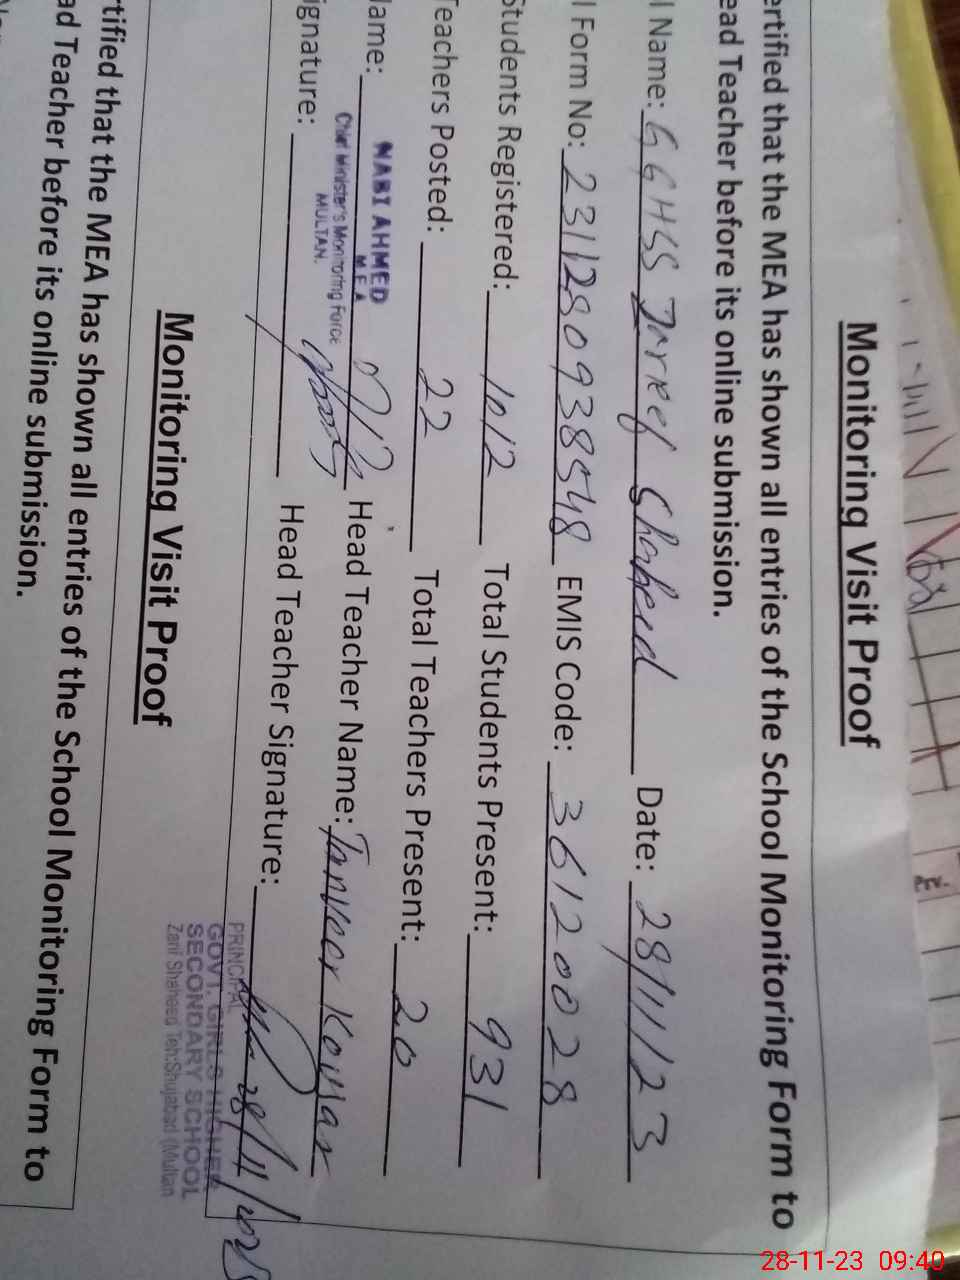 Monitoring Visit Proof
ertified that the MEA has shown all entries of the School Monitoring Form to
ead Teacher before its online submission.
l Name: GGHSS Zareef Shaheed Date: 28/11/23
l Form No: 2311280938548 EMIS Code: 36120028
Students Registered: 1012 Total Students Present: 931
Teachers Posted: 22 Total Teachers Present: 20
Name: Head Teacher Name: Tanveer Kousar
NABI AHMED
MEA
Chief Minister's Monitoring Force
MULTAN.
ignature: Head Teacher Signature: 28/11/2023
PRINCIPAL
GOVT. GIRLS HIGHER
SECONDARY SCHOOL
Zarif Shaheed Teh:Shujabad (Multan
Monitoring Visit Proof
rtified that the MEA has shown all entries of the School Monitoring Form to
ad Teacher before its online submission.
28-11-23 09:40